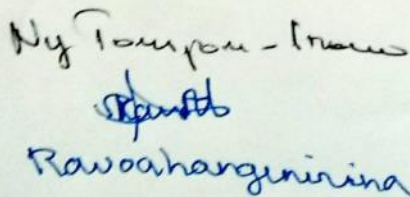 Ny Tompon-trano
Ravoahanginirina